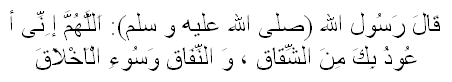 قالَ رَسُول الله (صلى الله عليه و سلم): اَللَّهُمَّ إِنِّى أ
عُوذُ بِكَ مِنَ الشِّقَاقِ ، وَ النِّفَاقِ وَسُوءِ الْاَخْلاَقَ